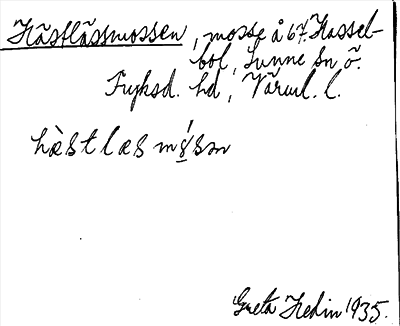 Hästlässmossen, mosse å 67. Hassel-
bol, Sunne sn ö.
Fryksd. hd, Värml. l.
hæ̀stlæsmɣ́sən
Greta Hedin 1935.